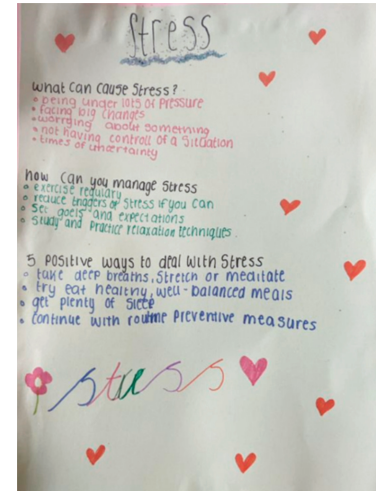 Stress
what can cause Stress?
• being under lots of Pressure
• facing big changes
• worrying about something
• not having controll of a Situation
• times of uncertainty
how can you manage Stress
• exercise regulary
• reduce triggers of Stress if you can
• Set goels and expectations
• Study and Practice relaxation techniques.
5 positive ways to deal with Stress
• take deep breaths, Stretch or meditate
• try eat healthy, well-balanced meals
• get plenty of Sleep
• continue with routine Preventive measures
stress